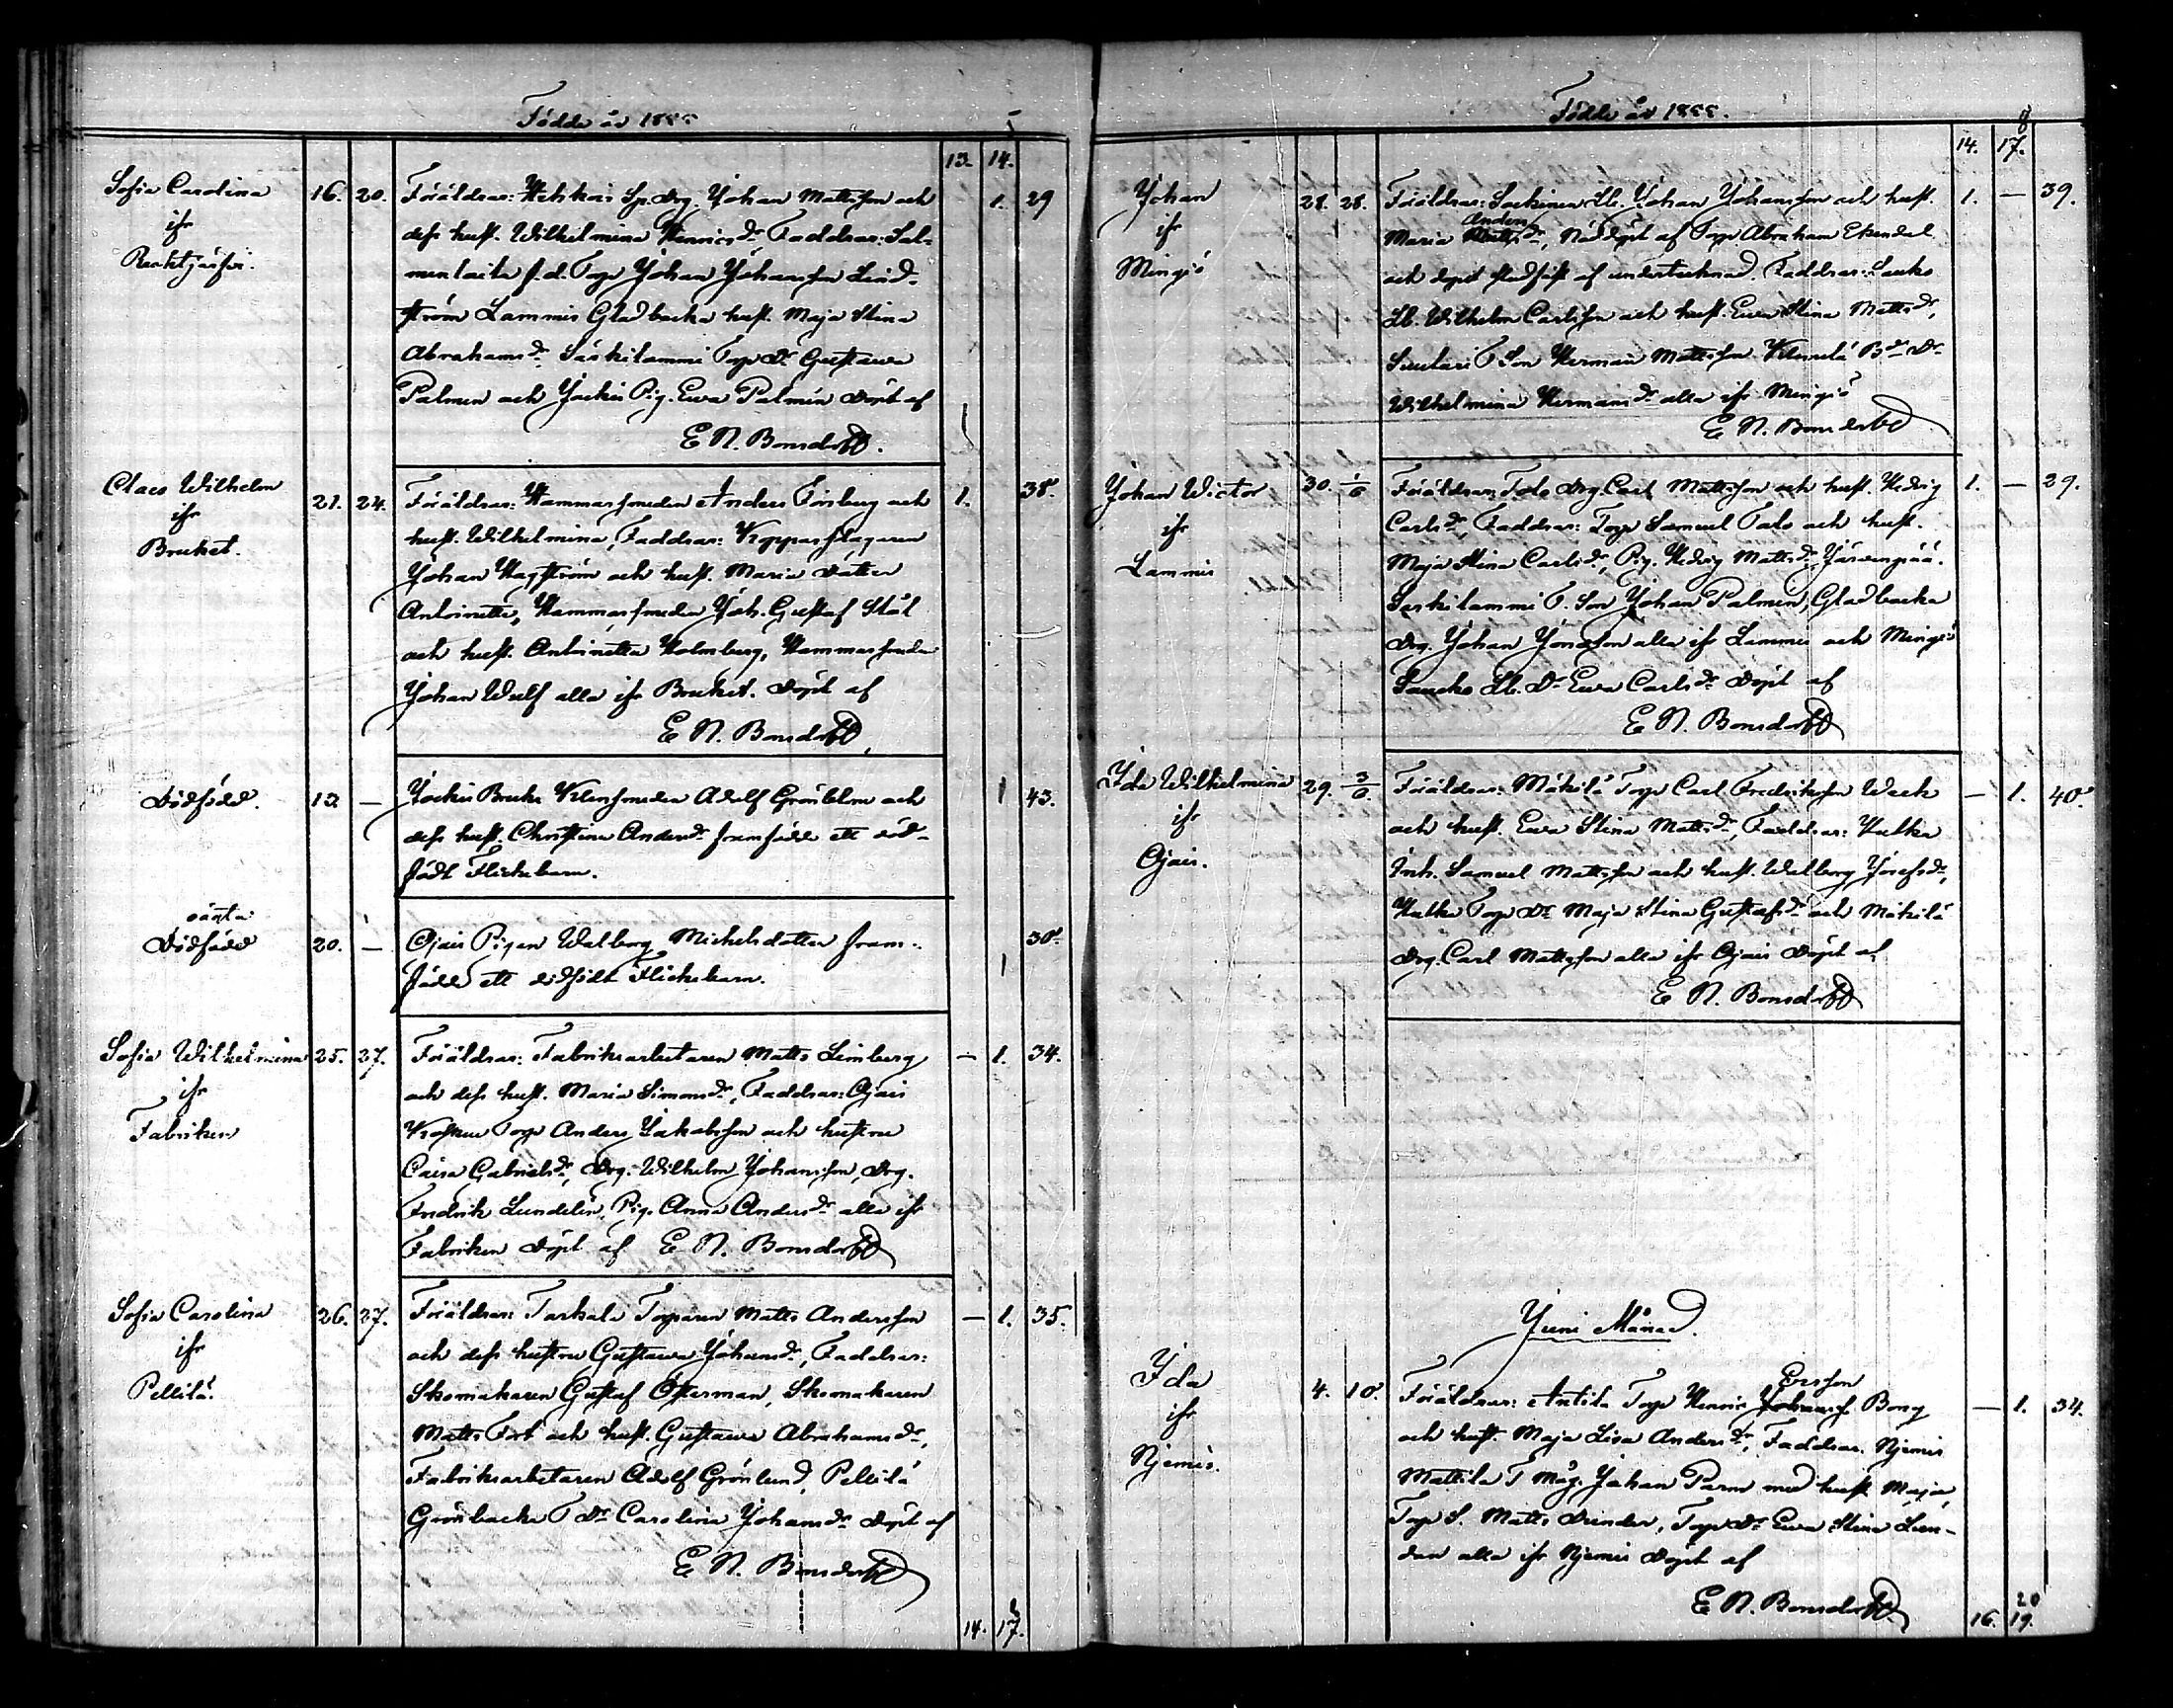 Födde år 1855
13. 14.
Sofia Carolina
ifr
16. 20.
Föräldrar: Drg. Johan Mattsson och
dess hust. Wilhelmina Henricsdr Faddrar: Sal-
f. d. Torp Johan Johansson Lind-
ström Lammis Gladbacka hust. Maja Stina
Abrahamsdr Särkilammi Torp Dr Gustawa
Palmen och Jockis Pig. Ewa Palmén Döpt af
E N. Bonsdorff.
1. 29
Claes Wilhelm
ifr
Bruket.
21. 24.
Föräldrar: Hammarsmeden Anders Forsberg och
hust. Wilhelmina, Faddrar: Kopparslagaren
Johan Hagström och hust. Maria Dotter
Antoinette, Hammarsmeden Joh. Gustaf Stål
och hust. Antoinetta Holmberg, Hammarsmeden
Johan Wulf alla ifr Bruket. Döpt af
E N. Bonsdorff
1. 38.
Dödfödd.
13 —
Jockis Bruks Klensmeden Adolf Grönblom och
dess hust. Christina Andersdr framfödde ett död-
födt Flickebarn.
1 43.
oäqta
Dödfödd
20. —
Ojais Pigan Walborg Michelsdotter fram-
födde ett dödfödt Flickebarn.
1 30.
Sofia Wilhelmina
ifr
Fabriken
25. 27.
Föräldrar: Fabriksarbetaren Matts Limberg
och dess hust. Maria Simonsdr, Faddrar: Ojais
Torp Anders Jakobsson och hustru
Caisa Gabrielsdr, Drg. Wilhelm Johansson, Drg.
Fredrik Lundelin, Pig. Anna Andersdr alla ifr
Fabriken Döpt af E N. Bonsdorff
— 1. 34.
Sofia Carolina
ifr
Pellilä.
26. 27.
Föräldrar: Torparen Matts Andersson
och dess hustru Gustawa Johansdr, Faddrar:
Skomakaren Gustaf Österman, Skomakaren
Matts Fort och hust. Gustawa Abrahamsdr,
Fabriksarbetaren Adolf Grönlund, Pellilä
Grönbacka T Dr Carolina Johansdr Döpt af
E N. Bonsdorff
— 1. 35.
14. 17.
Födde år 1855.
8
14. 17.
Johan
ifr
Mingiö
28. 28.
Föräldrar: Johan Johansson och hust.
Anders
Maria dr, Nöddöpt af Torp Abraham Ekendal
och dopet stadfäst af undertecknad. Faddrar:
Wilhelm Carlsson och hust. Ewa Stina Mattsdr,
T Son Herman Mattsson Dr
Wilhelmina Hermansdr alla ifr Mingiö
E N. Bonsdorff
1. — 39.
Johan Wictor
ifr
Lammis
30. 1/6
Föräldrar: Talo Drg. Carl Mattsson och hust. Hedvig
Carlsdr Faddrar: Torp Samuel Talo och hust.
Maja Stina Carlsdr, Pig. Hedvig Mattsdr, Järvenpää.
Särkilammi T. Son Johan Palmén, Gladbacka
Drg. Johan alla ifr Lammis och Mingiö
Dr Ewa Carlsdr Döpt af
E N. Bonsdorff
1. — 29.
Ida Wilhelmina
ifr
Ojais.
29. 3/6.
Föräldrar: Mäkilä Torp Carl Fredriksson Wack
och hust. Ewa Stina Mattsdr, Faddrar: Hulka
Inh. Samuel Mattsson och hust. Walborg Josefsdr,
Hulka Torp Dr Maja Stina Gustafsdr och Mäkilä
Drg. Carl Mattsson alla ifr Ojais Döpt af
E N. Bonsdorff
— 1. 40.
Juni Månad.
Ida
ifr
Njemis.
4. 10.
Ersson
Föräldrar: Antila Torp Henric Johanss. Borg
och hust. Maja Lisa Andersdr, Faddrar: Njemis
Mattila T Måg. Johan Parm med hust. Maja,
Torp S. Matts Drinder, Torp Dr Ewa Stina Lin-
den alla ifr Njemis Döpt af
E N. Bonsdorff
— 1. 34.
20
16. 19.